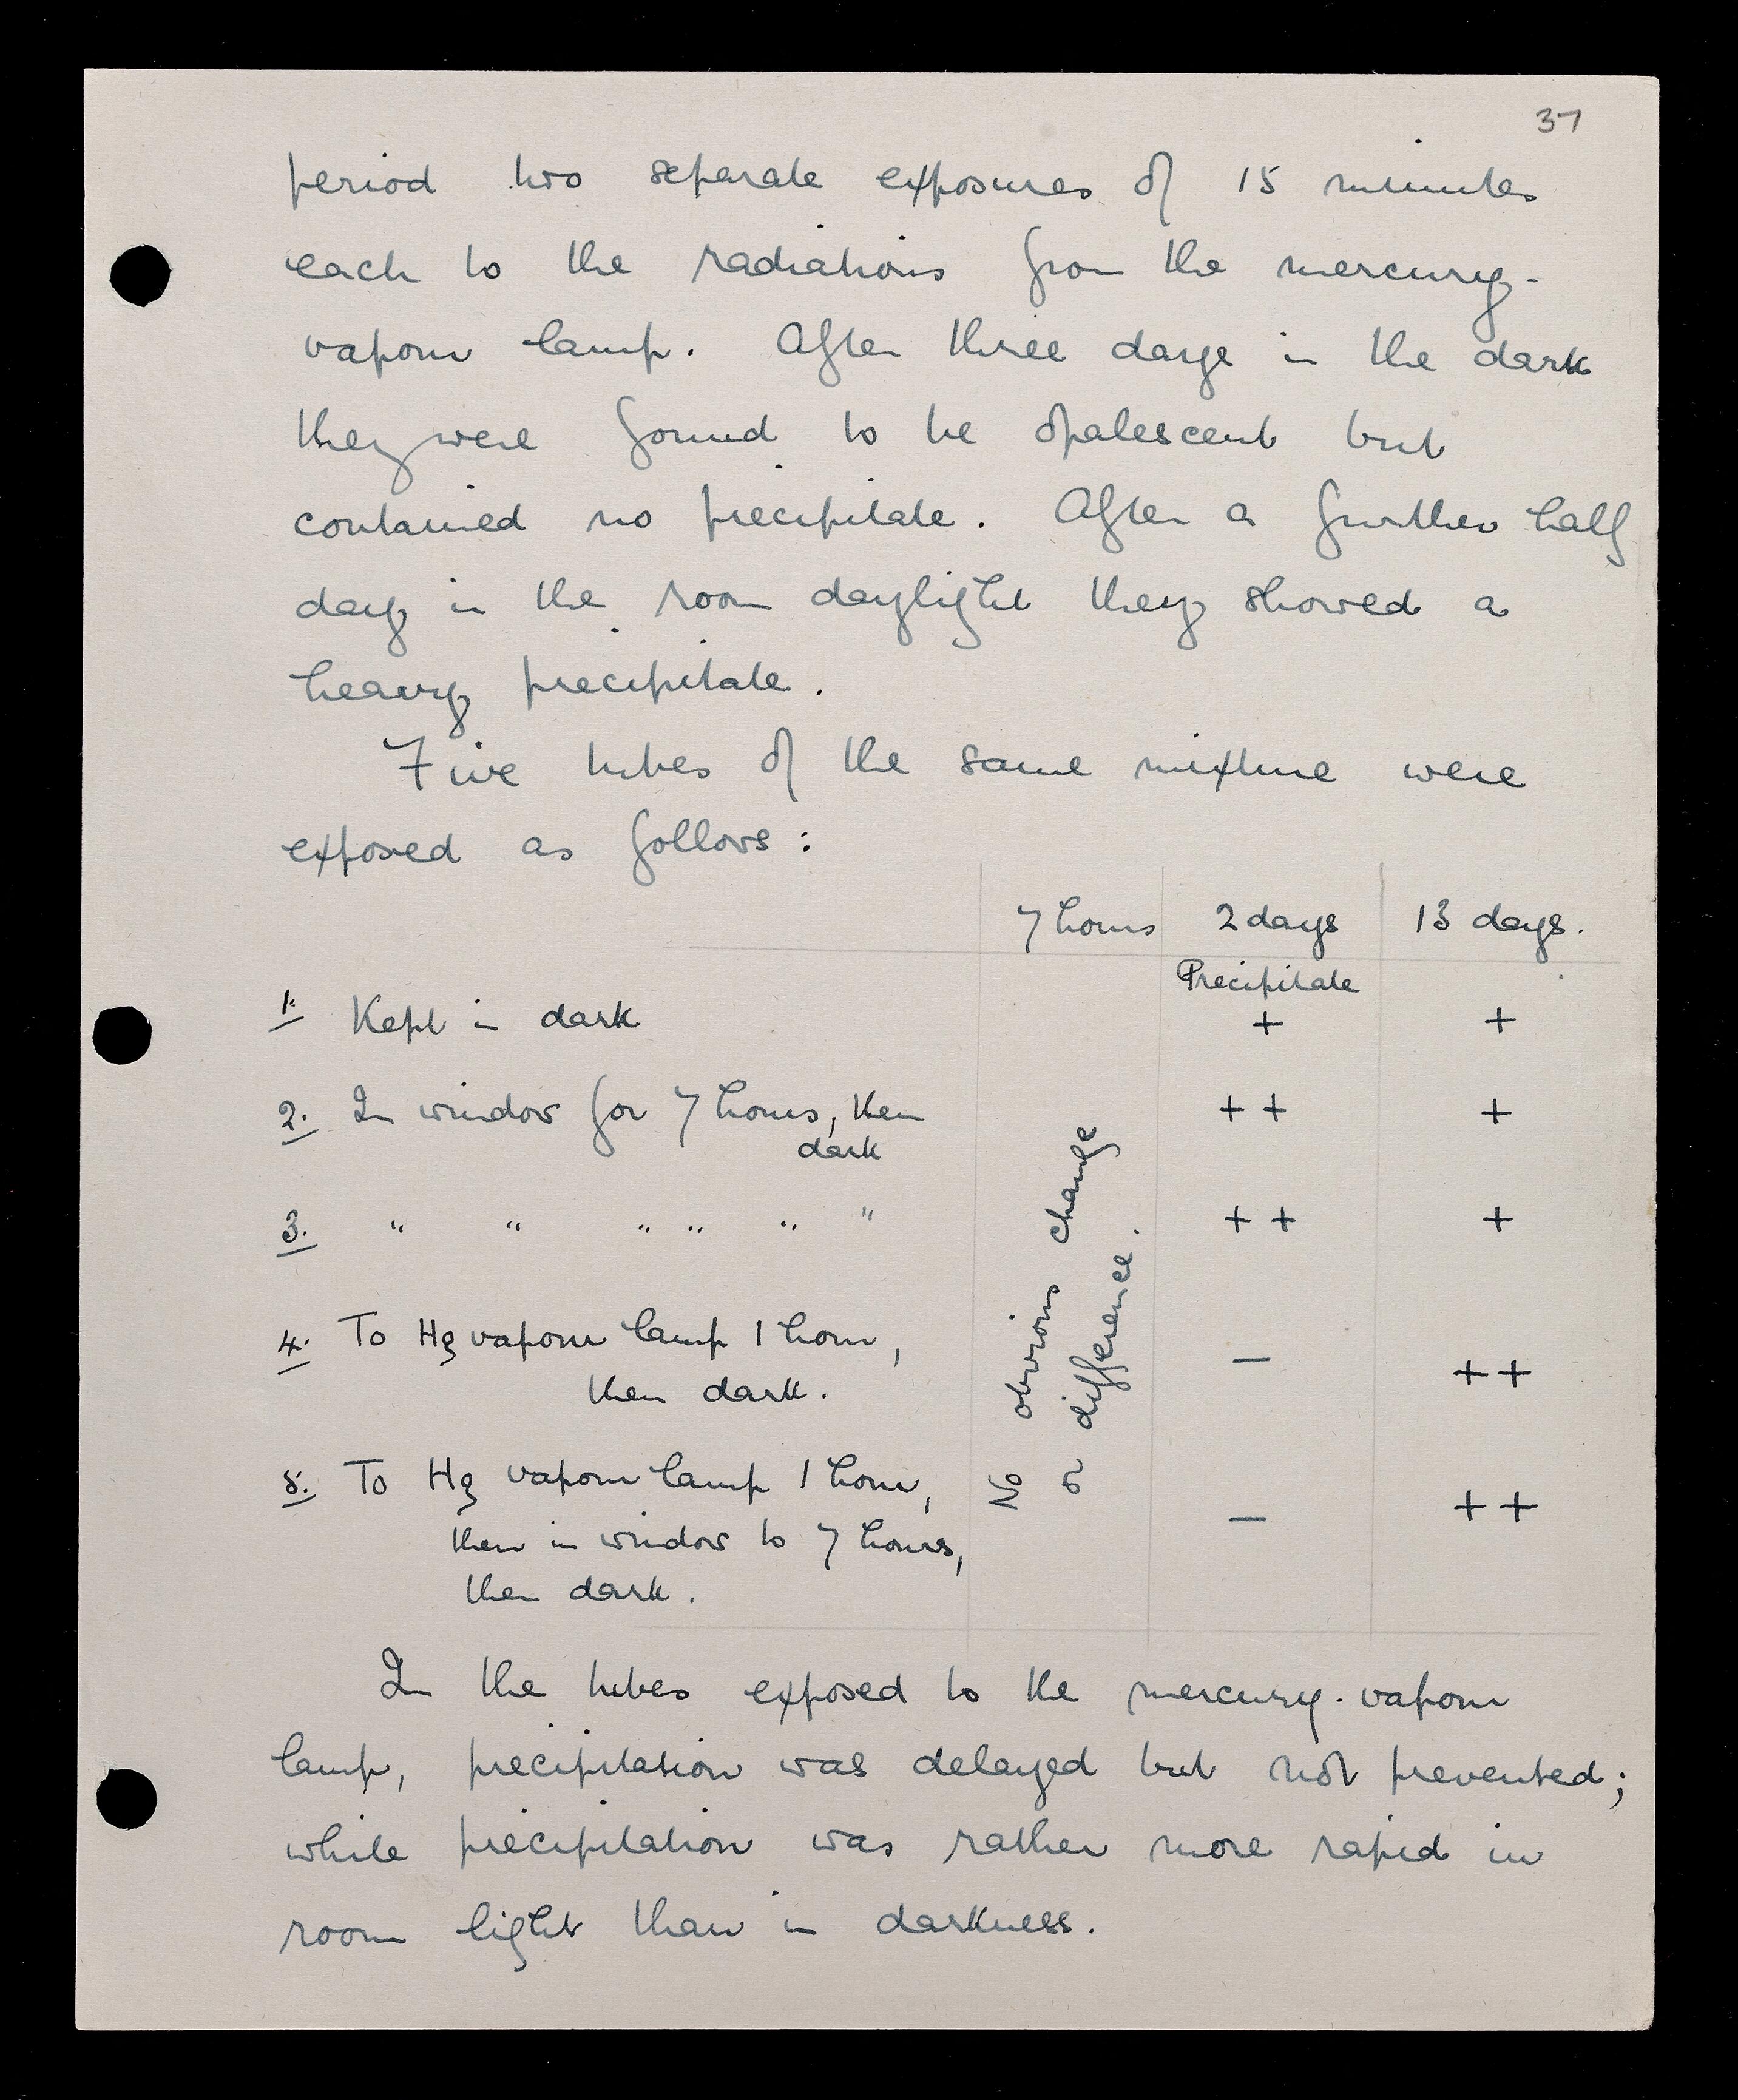 37
period two separate exposures of 15 minutes
each to the radiations from the mercury-
vapour lamp. After three days in the dark
they were found to be opalescent but
contained no precipitate. After a further half
day in the room daylight they showed a
heavy precipitate.
Five tubes of the same mixture were
exposed as follows:
7 hours 2 days 13 days.
Precipitate
1. Kept in dark + +
2. In window for 7 hours, then ++ +
dark
3. " " " " " " ++ +
No obvious change
or difference.
4. To Hg vapour lamp 1 hour, – ++
then dark.
5. To Hg vapour lamp 1 hour, – ++
then in window to 7 hours,
then dark.
In the tubes exposed to the mercury-vapour
lamp, precipitation was delayed but not prevented;
while precipitation was rather more rapid in
room light than in darkness.